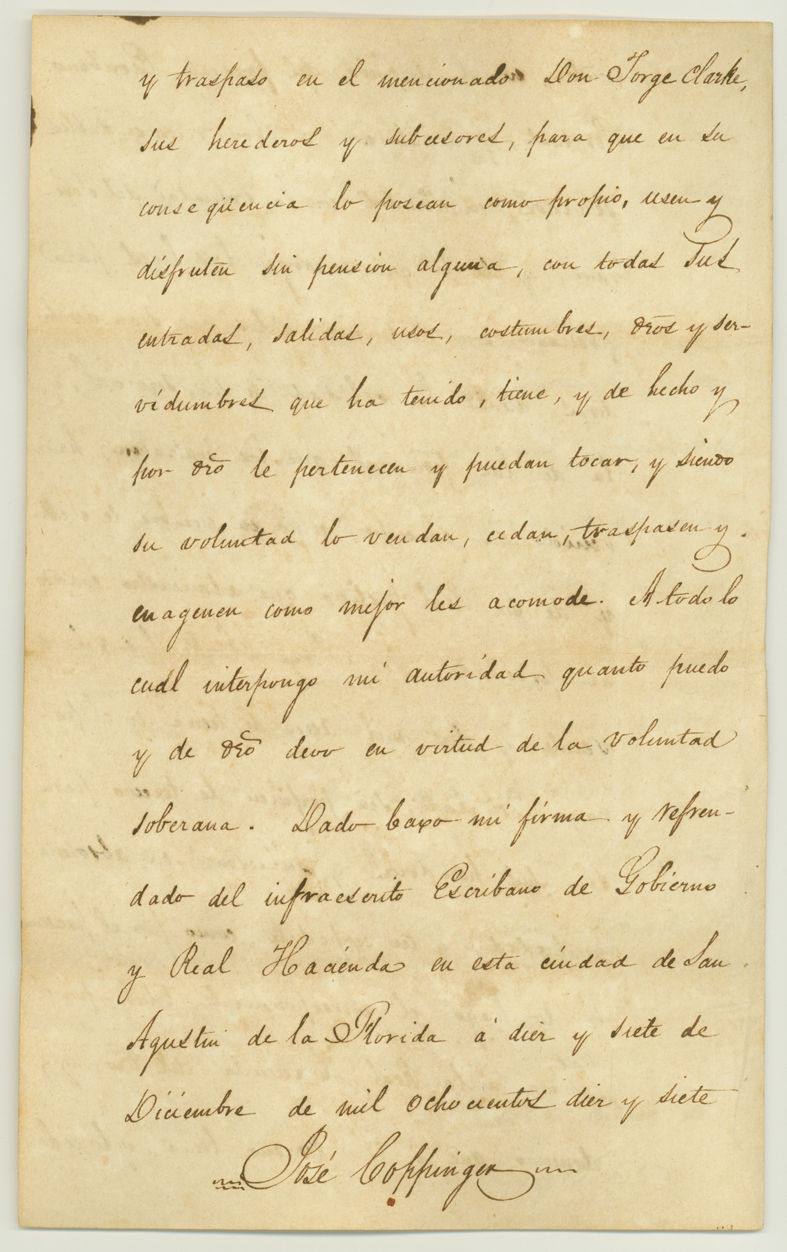 y traspaso en el mencionado Don Jorge Clarke,
sus herederos y subcesores, para que en su
conseqüencia lo posean como propio, usen y
disfruten sin pension alguna, con todas sus
entradas, salidas, usos, costumbres, dros y ser-
vidumbres que ha tenido, tiene, y de hecho y
por dro le pertenecen y puedan tocar, y siendo
su voluntad lo vendan, cedan, traspasen y
enagenen como mejor les acomode. A todo lo
cual interpongo mi autoridad quanto puedo
y de dro devo en virtud de la voluntad
soberana. Dado baxo mi firma y refren-
dado del infraescrito Escribano de Gobierno
y Real Hacienda en esta ciudad de San
Agustin de la Florida á diez y siete de
Diciembre de mil ochocientos diez y siete
José Coppinger